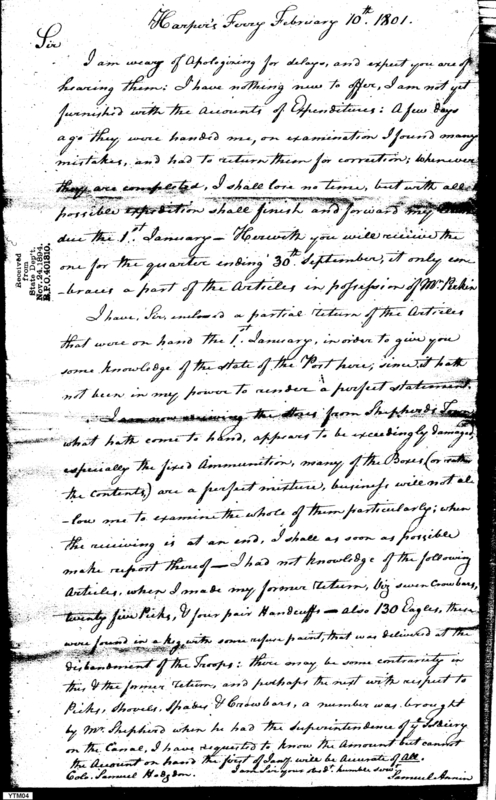 Harper's Ferry February 10th. 1801.
Sir
I am weary of Apologizing for delays, and expect you are of
hearing them: I have nothing new to offer, I am not yet
furnished with the accounts of Expenditures: A few days
ago they were handed me, on examination I found many
mistakes, and had to return them for correction; whenever
they are completed, I shall lose no time, but with all
possible expedition shall finish and forward my
due the 1st. January — Herewith you will receive the
one for the quarter ending 30th September, it only em
-braces a part of the Articles in possession of Mr.
I have, Sir, enclosed a partial return of the Articles
that were on hand the 1st. January, in order to give you
some knowledge of the state of the Post here; since it hath
not been in my power to render a perfect statement.
I am now receiving the stores from Shepherd's Town
what hath come to hand, appears to be exceedingly damaged,
especially the fixed Ammunition, many of the Boxes (or rather
the contents) are a perfect mixture, business will not al
-low me to examine the whole of them particularly; when
the receiving is at an end, I shall as soon as possible
make report thereof — I had not knowledge of the following
Articles, when I made my former return, Viz seven Crowbars,
twenty five Picks, & four pair Handcuffs — also 130 Eagles, these
were found in a keg with some refuse paint, that was delivered at the
disbandment of the Troops: there may be some contrariety in
this & the former return, and perhaps the next with respect to
Picks, Shovels, Spades & Crowbars, a number was brought
by Mr. Shepherd when he had the Superintendence of ye Soldiery
on the Canal, I have requested to know the Amount but cannot
the Account on hand the first of Jany. will be Accurate of All.
Colo. Samuel Hodgdon. I am Sir your Obdt. humble servt
Samuel Annin
Received
from
State Dep't.
Nov. 24, 1894.
R.P.O. 401810.
YTM04